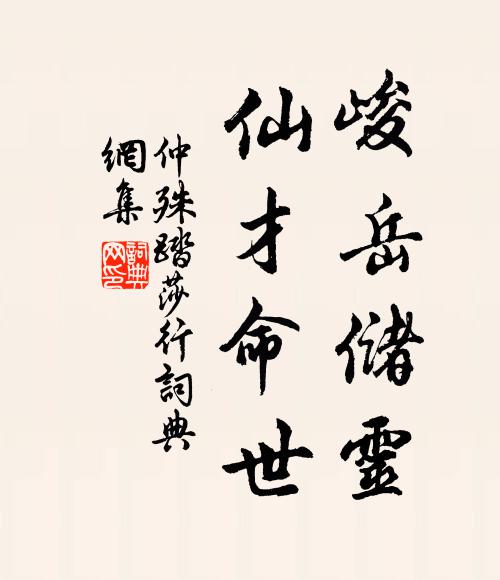 峻岳儲靈
仙才命世
仲殊踏莎行詞典
網集
詞典
网印